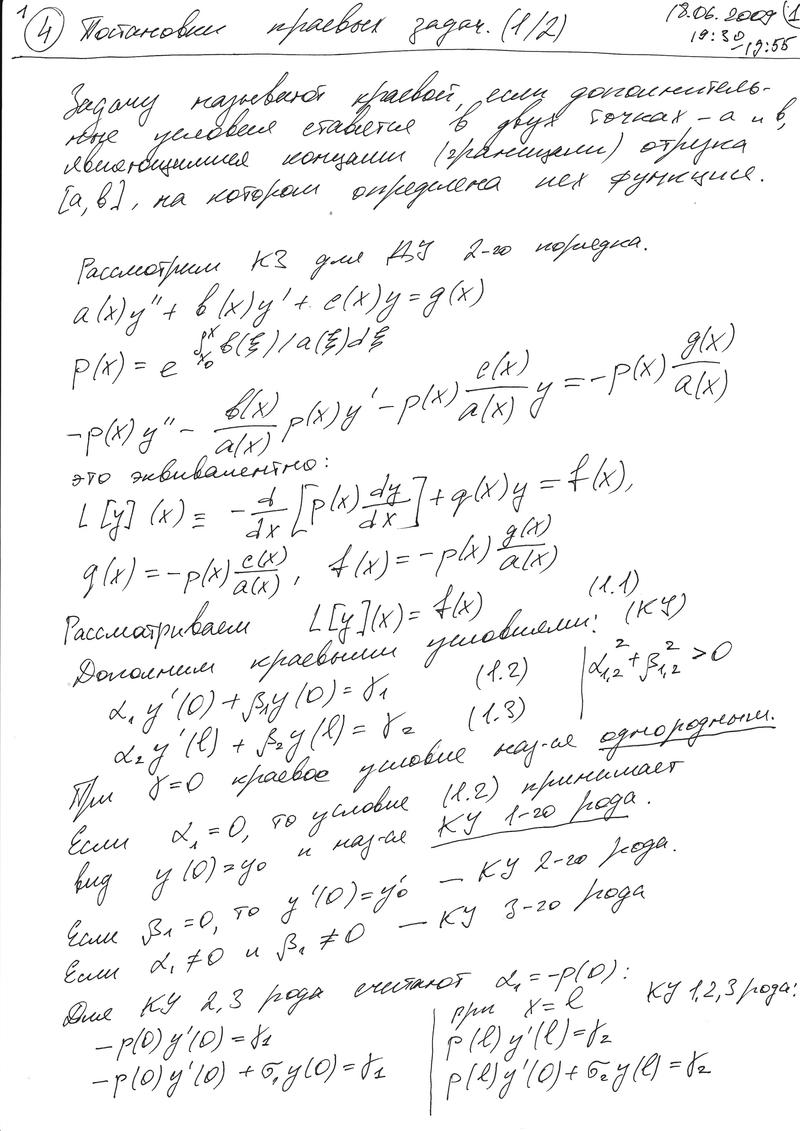 1 ④ Постановки краевых задач. (1/2) 18.06.2009 (1
19:30
–19:55
Задачу называют краевой, если дополнитель-
ные условия ставятся в двух точках – a и b,
являющимися концами (границами) отрезка
[a,b], на котором определена неk функция.
Рассмотрим КЗ для ДУ 2-го порядка.
a(x)y'' + b(x)y' + c(x)y = g(x)
p(x) = e^{∫_{x₀}^{x} b(ξ)/a(ξ)dξ}
-p(x)y'' - b(x)/a(x) p(x)y' - p(x) c(x)/a(x) y = -p(x) g(x)/a(x)
это эквивалентно:
L[y](x) ≡ -d/dx [p(x) dy/dx] + q(x)y = f(x),
q(x) = -p(x) c(x)/a(x), f(x) = -p(x) g(x)/a(x)
Рассматриваем L[y](x) = f(x) (1.1)
Дополним краевыми условиями: (КУ)
α₁y'(0) + β₁y(0) = γ₁ (1.2) | α²₁,₂ + β²₁,₂ > 0
α₂y'(l) + β₂y(l) = γ₂ (1.3)
При γ=0 краевое условие наз-ся однородным.
Если α₁ = 0, то условие (1.2) принимает
вид y(0)=y₀ и наз-ся КУ 1-го рода.
Если β₁=0, то y'(0)=y₀' — КУ 2-го рода.
Если α₁≠0 и β₁≠0 — КУ 3-го рода
Для КУ 2,3 рода считают α₁=-p(0): КУ 1,2,3 рода:
-p(0)y'(0)=γ₁
-p(0)y'(0) + σ₁y(0)=γ₁
при x=l
p(l)y'(l)=γ₂
p(l)y'(0)+σ₂y(l)=γ₂